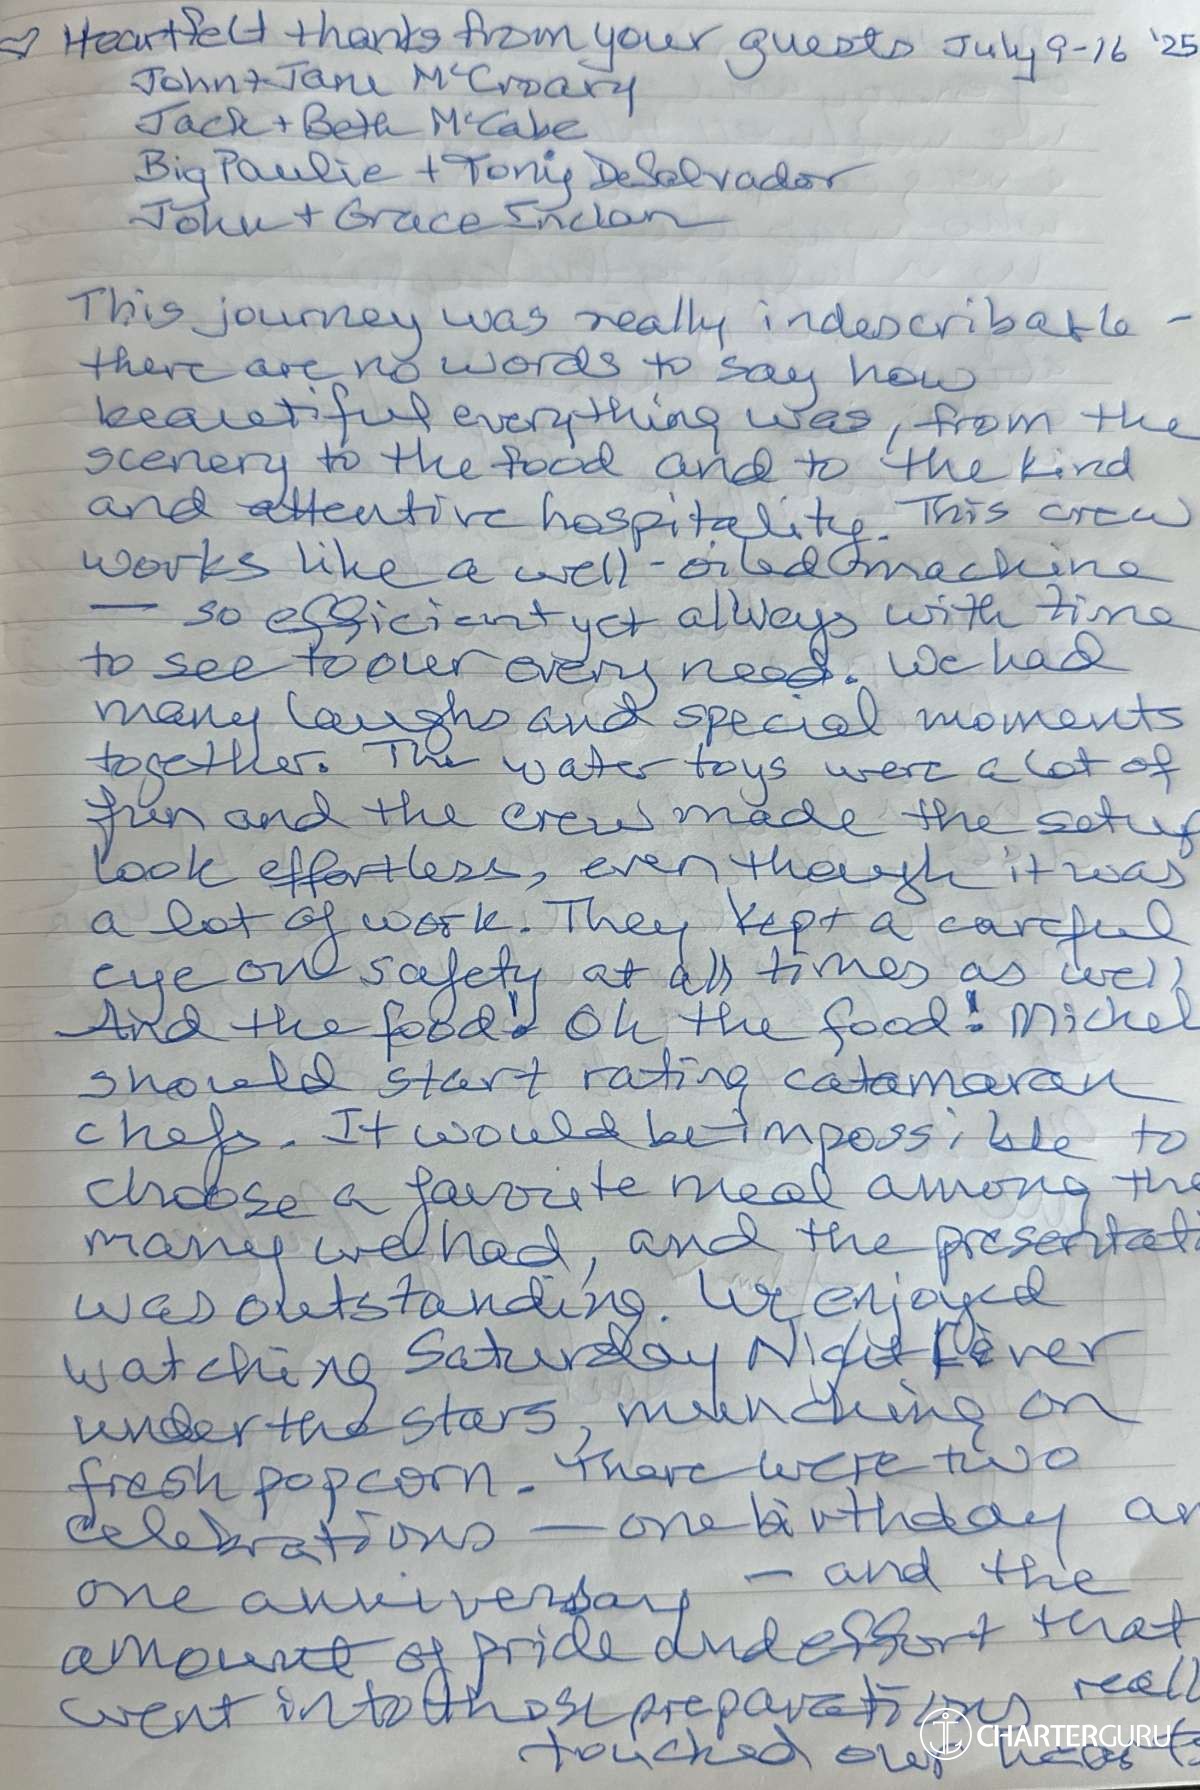 Heartfelt thanks from your guests July 9-16 '25
John + Jane McCroary
Jack + Beth McCabe
Big Paulie + Tony DeSalvador
John + Grace Inclan
This journey was really indescribable -
there are no words to say how
beautiful everything was, from the
scenery to the food and to the kind
and attentive hospitality. This crew
works like a well-oiled machine
— so efficient yet always with time
to see to our every need. We had
many laughs and special moments
together. The water toys were a lot of
fun and the crew made the setup
look effortless, even though it was
a lot of work. They kept a careful
eye on safety at all times as well
And the food! Oh the food! Michel
should start rating catamaran
chefs. It would be impossible to
choose a favorite meal among the
many we had, and the presentati
was outstanding. We enjoyed
watching Saturday Night Fever
under the stars, munching on
fresh popcorn. There were two
celebrations — one birthday an
one anniversary — and the
amount of pride and effort that
went into those preparations really
touched our hearts
CHARTERGURU